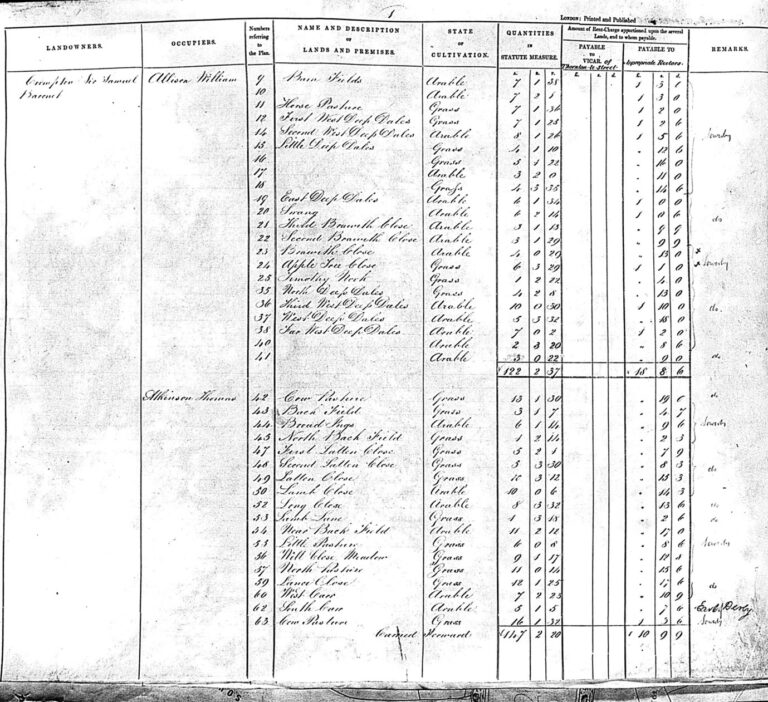 1
LONDON: Printed and Published
LANDOWNERS. OCCUPIERS. Numbers referring to the Plan. NAME AND DESCRIPTION OF LANDS AND PREMISES. STATE OF CULTIVATION. QUANTITIES IN STATUTE MEASURE. Amount of Rent-Charge apportioned upon the several Lands, and to whom payable. REMARKS.
PAYABLE TO VICAR of Thornton le Street PAYABLE TO Appropriate Rectors.
A. R. P. £ s. d. £ s. d.
Crompton Sir Samuel Allison William 9 Barn Fields Arable 7 1 38 1 3 1
Baronet 10 Arable 7 2 1 1 3 0
11 Horse Pasture Grass 7 1 36 1 2 0
12 First West Deep Dales Grass 7 1 25 1 2 6
14 Second West Deep Dales Arable 8 1 26 1 5 6 Sowerby
15 Little Deep Dales Grass 4 1 10 " 12 6
16 Grass 5 1 22 " 16 0
17 Arable 3 2 0 " 11 0
18 Grass 4 3 35 " 14 6
19 East Deep Dales Arable 6 1 34 1 0 0
20 Swang Arable 6 2 14 1 0 6 do
21 Third Braweth Close Arable 3 1 13 " 9 9
22 Second Braweth Close Arable 3 1 29 " 9 9
23 Braweth Close Arable 4 0 29 " 13 0
24 Apple Tree Close Grass 6 3 29 1 1 0 Sowerby
25 Timothy Nook Grass 1 2 22 " 4 0
35 North Deep Dales Grass 4 2 8 " 13 0
36 Third West Deep Dales Arable 10 0 30 1 10 0 do.
37 West Deep Dales Arable 5 3 32 " 18 0
38 Far West Deep Dales Arable 7 0 2 1 2 0
40 Arable 2 3 20 " 8 6
41 Arable 3 0 22 " 9 0 do
122 2 37 18 8 6
Atkinson Thomas 42 Cow Pasture Grass 13 1 30 " 19 0 do
43 Back Field Grass 3 1 7 " 4 7
44 Broad Ings Arable 6 1 14 " 9 6 Sowerby
45 North Back Field Grass 1 2 14 " 2 3
47 First Latten Close Grass 5 2 1 " 7 9
48 Second Latten Close Grass 5 3 30 " 8 3 do
49 Latten Close Grass 10 3 12 " 15 3
50 Lamb Close Arable 10 0 6 " 14 3
52 Long Close Arable 8 3 32 " 13 6 do
53 Lamb Lane Grass 1 3 18 " 2 6 do
54 Near Back Field Arable 11 2 12 " 17 0
55 Little Pasture Grass 6 0 8 " 8 6 Sowerby
56 Well Close Meadow Grass 9 1 17
57 North Pasture Grass 11 0 14 " 15 6
59 Lance Close Grass 12 1 25 " 17 6
60 West Carr Arable 7 2 23 " 10 9 do
62 South Carr Arable 5 1 5 Earl Derby
63 Cow Pasture Grass 16 1 32 1 3 6 Sowerby
Carried Forward £147 2 20 £ 10 9 9